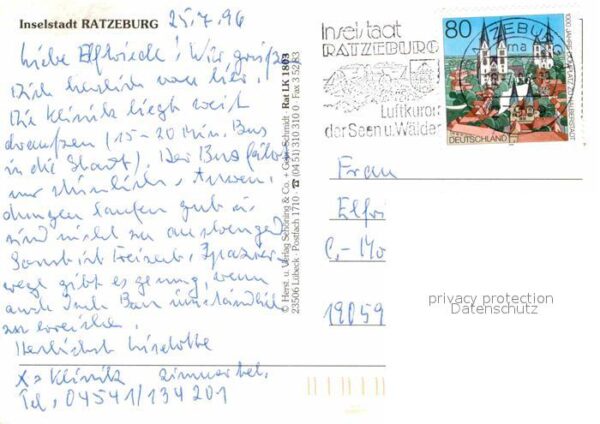 Inselstadt RATZEBURG 25.7.96
Liebe Elfriede! Wir grüßen
Dich herzlich von hier.
Die Klinik liegt weit
draußen (15-20 Min. Bus
in die Stadt). Der Bus fährt
nur stündlich, Anwen-
dungen laufen gut u.
sind nicht zu anstrengend
Sonst ist Freizeit, Spazier-
wege gibt es genug, wenn
auch Bus umständlich
zu erreichen.
Herzlichst Liselotte
X = Klinik Zimmertel.
Tel. 04541/134 201
© Herst. u. Verlag Schöning & Co. + Gebr. Schmidt · Rat LK 1803
23506 Lübeck · Postfach 1710 · ☎ (04 51) 310 310 0 · Fax 3 52 83
Inselstadt
RATZEBURG
Luftkurort
der Seen u. Wälder
80
DEUTSCHLAND
Frau
Elfri
C.-
19059
privacy protection
Datenschutz